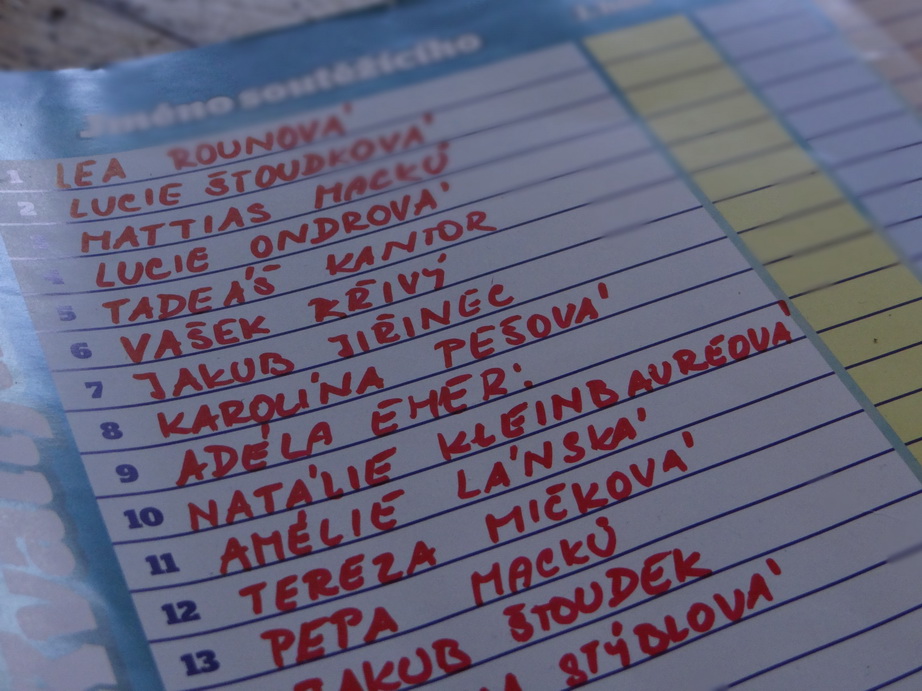 Jméno soutěžícího
1 LEA ROUNOVÁ
2 LUCIE ŠTOUDKOVÁ
3 MATTIAS MACKŮ
4 LUCIE ONDROVÁ
5 TADEÁŠ KANTOR
6 VAŠEK KŘIVÝ
7 JAKUB JIŘINEC
8 KAROLÍNA PEŠOVÁ
9 ADÉLA EMER:
10 NATÁLIE KLEINBAUREOVÁ
11 AMÉLIE LÁNSKÁ
12 TEREZA MIČKOVÁ
13 PEPA MACKŮ
JAKUB ŠTOUDEK
STÝDLOVÁ